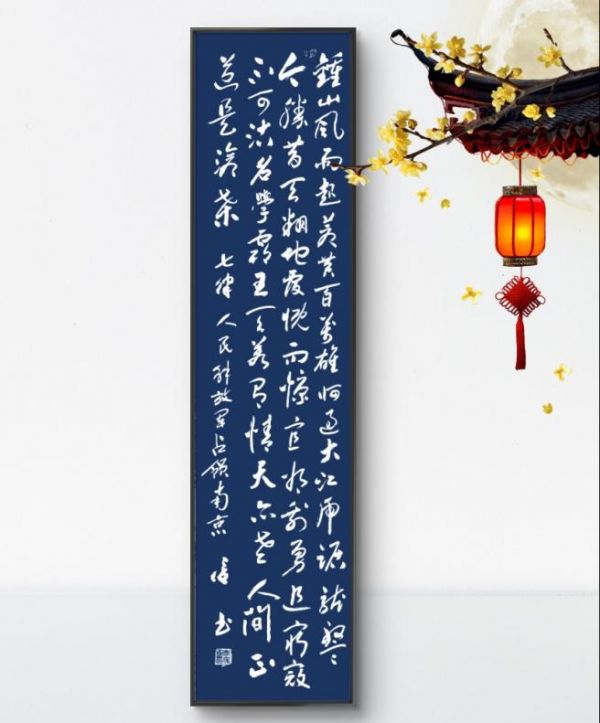 鍾山风雨起蒼黄百萬雄师过大江虎踞龙盤
今勝昔天翻地覆慨而慷宜将剩勇追窮寇
不可沽名學霸王天若有情天亦老人間正
道是滄桑 七律 人民解放军占领南京 书